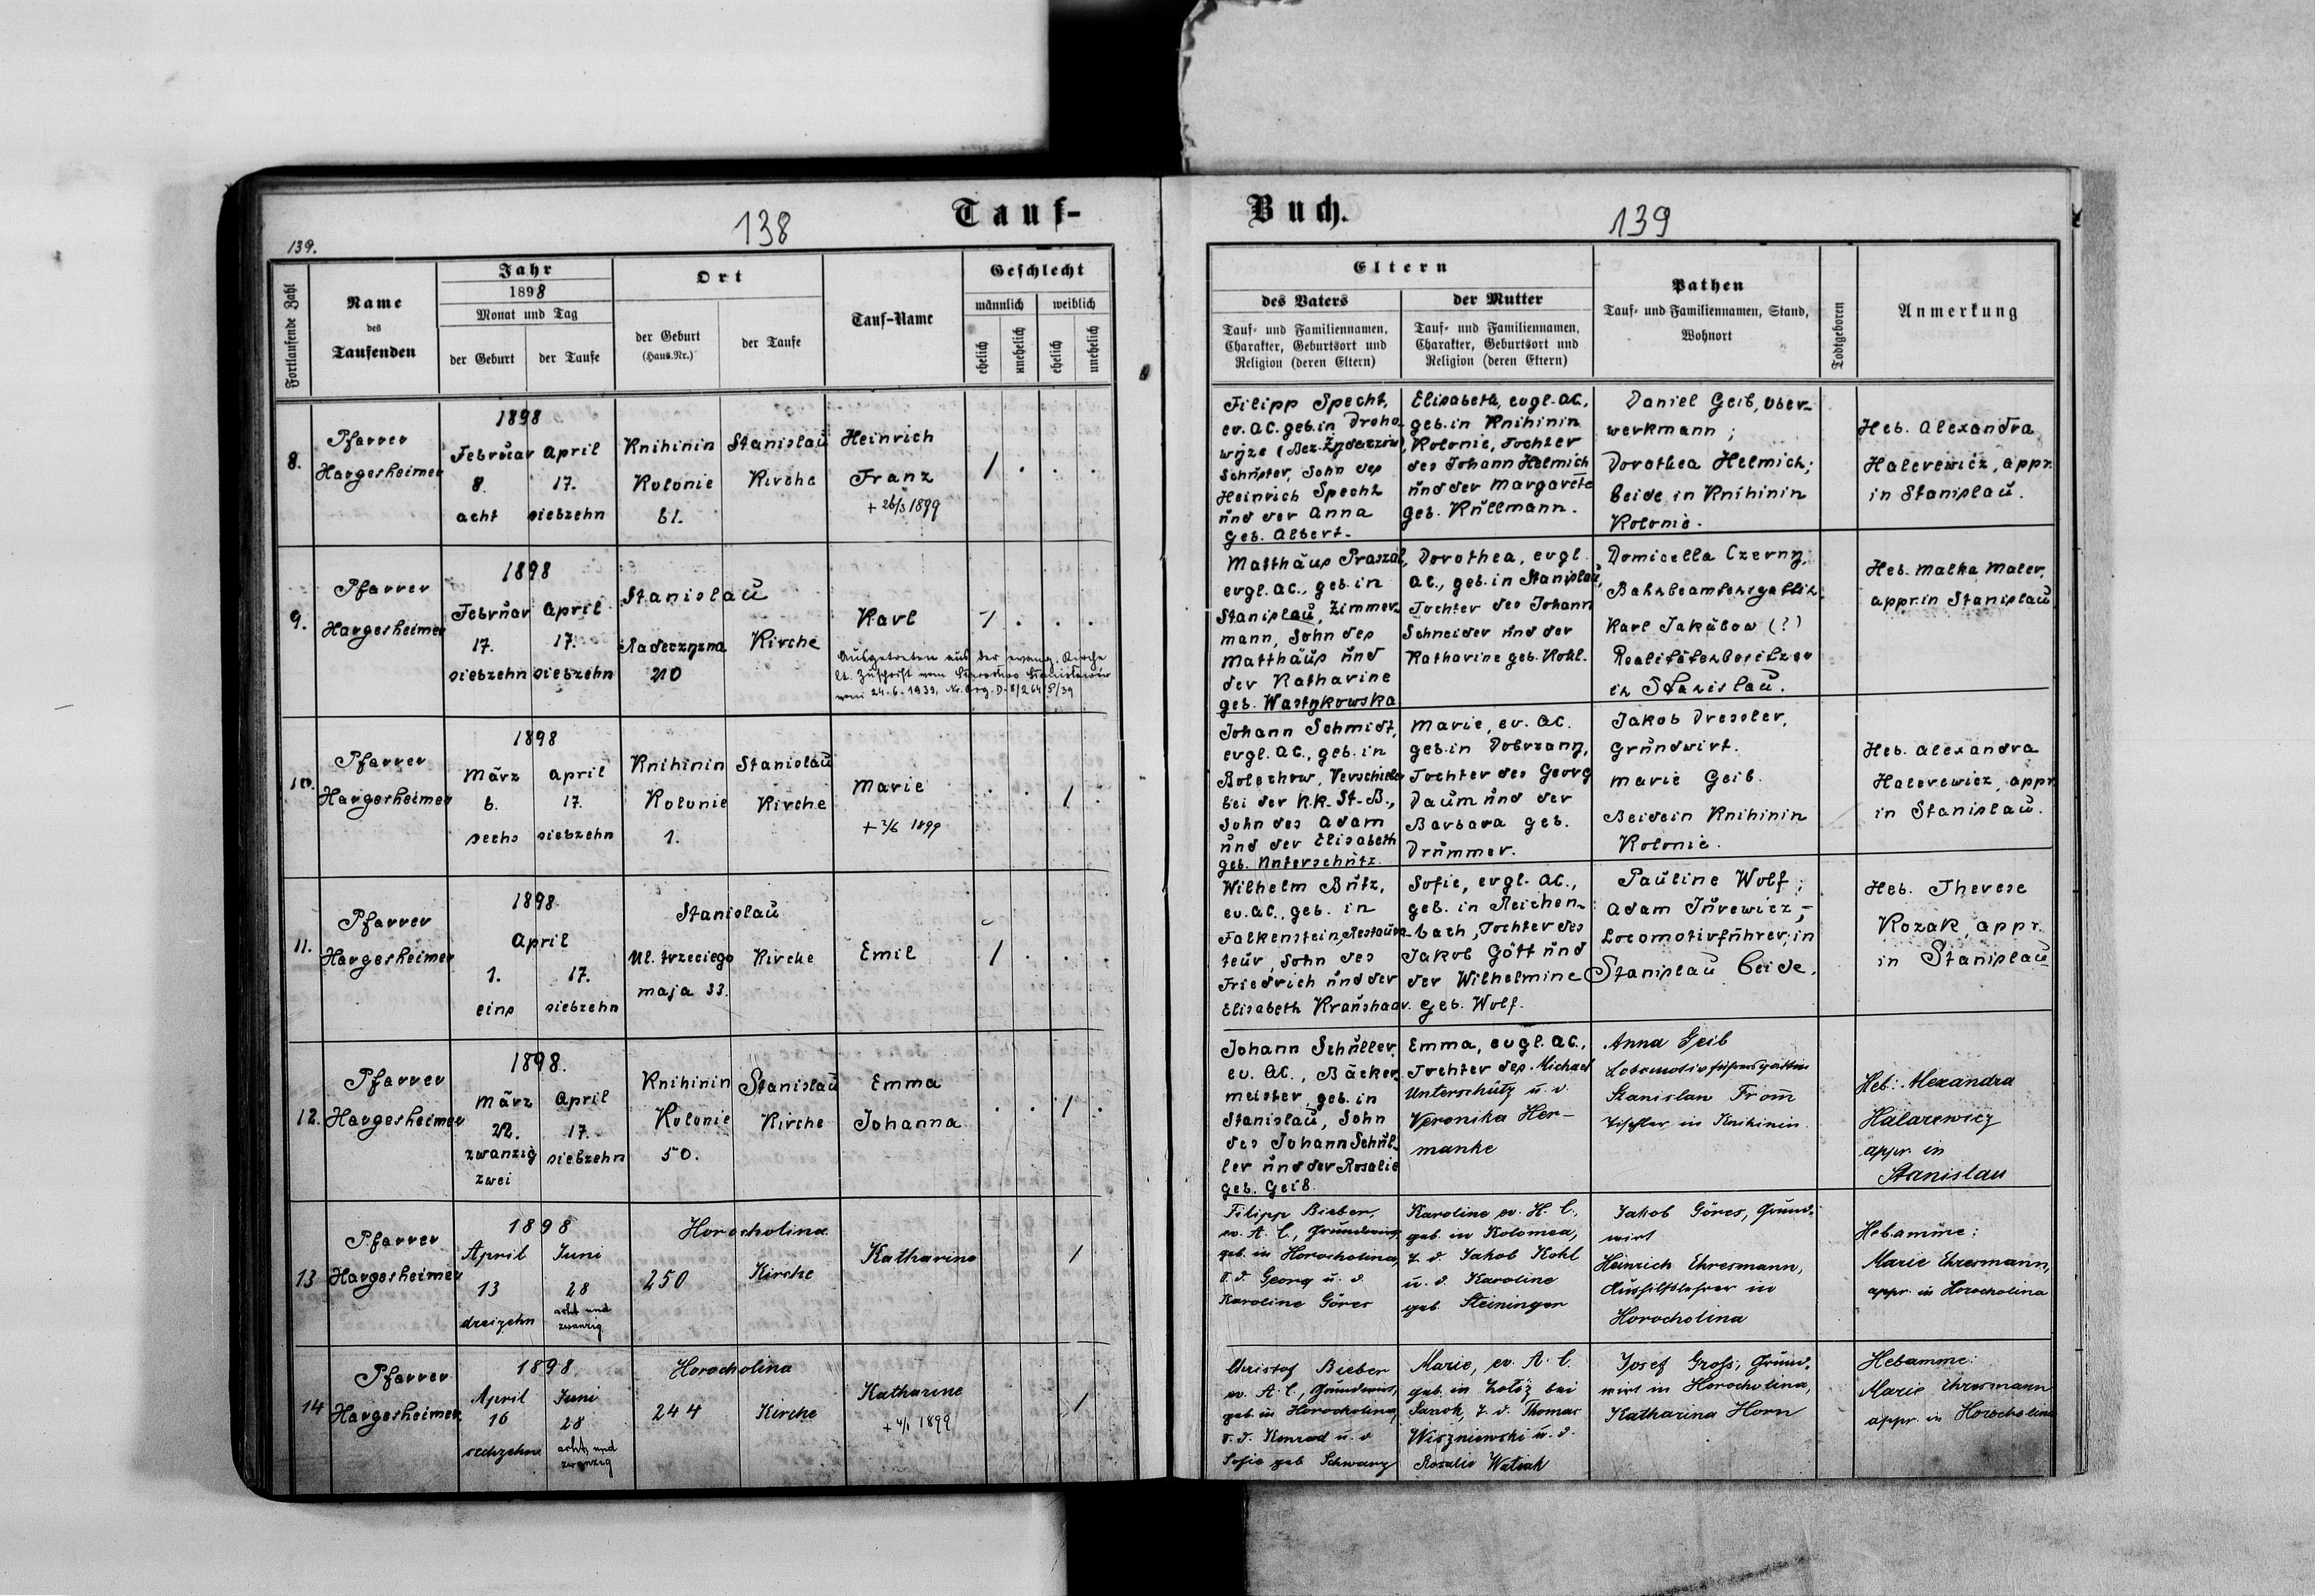 Tauf-
138
139.
Fortlaufende Zahl
Name
des
Taufenden
Jahr
1898
Monat und Tag
der Geburt
der Taufe
Ort
der Geburt
(Haus-Nr.)
der Taufe
Tauf-Name
Geschlecht
männlich
weiblich
ehelich
unehelich
ehelich
unehelich
8.
Pfarrer
Hargesheimer
1898
Februar
8.
acht
April
17.
siebzehn
Knihinin
Kolonie
61.
Stanislau
Kirche
Heinrich
Franz
+ 26/3 1899
1 . . .
9.
Pfarrer
Hargesheimer
1898
Februar
17.
siebzehn
April
17.
siebzehn
Stanislau
Kirche
Karl
1 . . .
Ausgetreten aus der evang. Kirche
10.
Pfarrer
Hargesheimer
1898
März
6.
sechs
April
17.
siebzehn
Knihinin
Kolonie
1.
Stanislau
Kirche
Marie
+ 2/6 1899
. . 1 .
11.
Pfarrer
Hargesheimer
1898
April
1.
eins
17.
siebzehn
Stanislau
Ul. trzeciego
maja 33.
Kirche
Emil
1 . . .
12.
Pfarrer
Hargesheimer
1898.
März
22.
zwanzig
zwei
April
17.
siebzehn
Knihinin
Kolonie
50.
Stanislau
Kirche
Emma
Johanna
. . 1 .
13
Pfarrer
Hargesheimer
1898
April
13
dreizehn
Juni
28
acht und
zwanzig
Horocholina
250
Kirche
Katharine
1
14
Pfarrer
Hargesheimer
1898.
April
16
sechzehn
Juni
28
acht und
zwanzig
Horocholina
244
Kirche
Katharine
1899
1
Buch.
139
Eltern
des Vaters
Tauf- und Familiennamen,
Charakter, Geburtsort und
Religion (deren Eltern)
der Mutter
Tauf- und Familiennamen,
Charakter, Geburtsort und
Religion (deren Eltern)
Pathen
Tauf- und Familiennamen, Stand,
Wohnort
Todtgeboren
Anmerkung
Filipp Specht,
ev. AC. geb. in Droho-
wyze (Bez. Zydaczow)
Schuster, Sohn des
Heinrich Specht
und der Anna
geb. Albert.
Elisabeth, evgl. AC.,
geb. in Knihinin
Kolonie, Tochter
des Johann Helmich
und der Margarete
geb. Kullmann.
Daniel Geib, Ober-
werkmann;
Dorothea Helmich;
beide in Knihinin
Kolonie.
Heb. Alexandra
Halerewicz, appr.
in Stanislau.
Matthäus Praszal,
evgl. AC., geb. in
Stanislau, Zimmer-
mann, Sohn des
Matthäus und
der Katharine
geb. Wastykowska
Dorothea, evgl.
AC., geb. in Stanislau,
Tochter des Johann
Schneider und der
Katharine geb. Kohl.
Domicella Czerny,
Bahnbeamtensgattin.
Karl Jakubow (?)
Realitätenbesitzer
in Stanislau.
Heb. Malka Maler,
appr. in Stanislau
Johann Schmidt,
evgl. AC., geb. in
Bolechow, Verschieber
bei der k.k. St-B.,
Sohn des Adam
und der Elisabeth
geb. Unterschütz.
Marie, ev. AC.
geb. in Dobrzany,
Tochter des Georg
Daum und der
Barbara geb.
Drummer.
Jakob Dressler,
Grundwirt.
Marie Geib.
Beide in Knihinin
Kolonie.
Heb. Alexandra
Halerewicz, appr
in Stanislau.
Wilhelm Butz,
ev. AC., geb. in
Falkenstein, Restaura-
teur, Sohn des
Friedrich und der
Elisabeth Kraushaar.
Sofie, evgl. AC.,
geb. in Reichen-
bach, Tochter des
Jakob Gött und
der Wilhelmine
geb. Wolf.
Pauline Wolf;
Adam Jurewicz,-
Locomotivführer, in
Stanislau beide.
Heb. Therese
Kozak, appr.
in Stanislau
Johann Schuller,
ev. AC., Bäcker-
meister, geb. in
Stanislau, Sohn
des Johann Schul-
ler und der Rosalie
geb. Geib.
Emma, evgl. AC.,
Tochter des Michael
Unterschütz u. d.
Veronika Her-
manke
Anna Geib
Lokomotivführersgattin
Stanislau From̄
Tischler in Knihinin.
Heb: Alexandra
Halarewicz
appr. in
Stanislau
Filipp Bieber,
ev. A. C., Grundwirt,
geb. in Horocholina,
S. d. Georg u. d.
Karoline Göres
Karoline ev. H. C.,
geb. in Kolomea,
T. d. Jakob Kohl
u. d. Karoline
geb Steininger
Jakob Göres, Grund-
wirt
Heinrich Ehresmann,
Aushilfslehrer in
Horocholina
Hebamme:
Marie Ehresmann,
appr. in Horocholina
Christof Bieber
ev. A. C., Grundwirt,
geb. in Horocholina,
S. d. Konrad u. d
Sofie geb Schwarz
Marie, ev. A. C.
geb. in
Sanok, T. d. Thomas
Wiszniewski u. d.
Rosalie
Josef Groß, Grund-
wirt in Horocholina,
Katharina Horn
Hebamme:
Marie Ehresmann
appr. in Horocholina